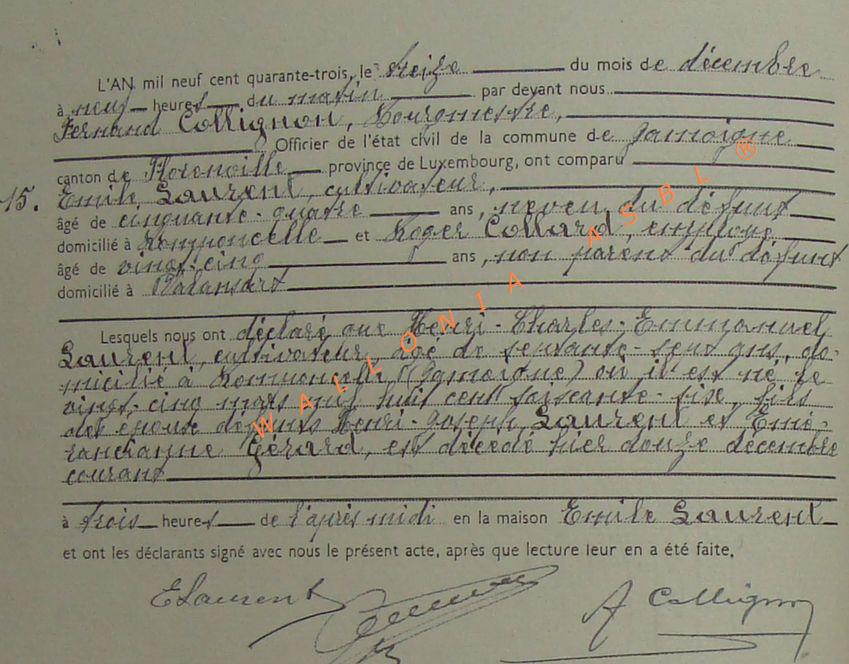 L'AN mil neuf cent quarante-trois, le treize du mois de décembre
à neuf heures du matin par devant nous
Fernand Collignon, Bourgmestre,
Officier de l'état civil de la commune de Jamoigne
canton de Florenville province de Luxembourg, ont comparu
15. Emile Laurent, cultivateur,
âgé de cinquante-quatre ans, neveu du défunt
domicilié à Romponcelle et Roger Collard, employé
âgé de vingt-cinq ans, non parent du défunt
domicilié à Valansart
Lesquels nous ont déclaré que Henri-Charles-Emmanuel
Laurent, cultivateur, âgé de septante-sept ans, do-
micilié à Romponcelle (Jamoigne) où il est né le
vingt-cinq mars mil huit cent soixante-six, fils
des époux défunts Henri-Joseph Laurent et Emé-
rancianne Gérard, est décédé hier douze décembre
courant
à trois heures de l'après midi en la maison Emile Laurent
et ont les déclarants signé avec nous le présent acte, après que lecture leur en a été faite.
ELaurent
Collignon
WALLONIA ASBL ®